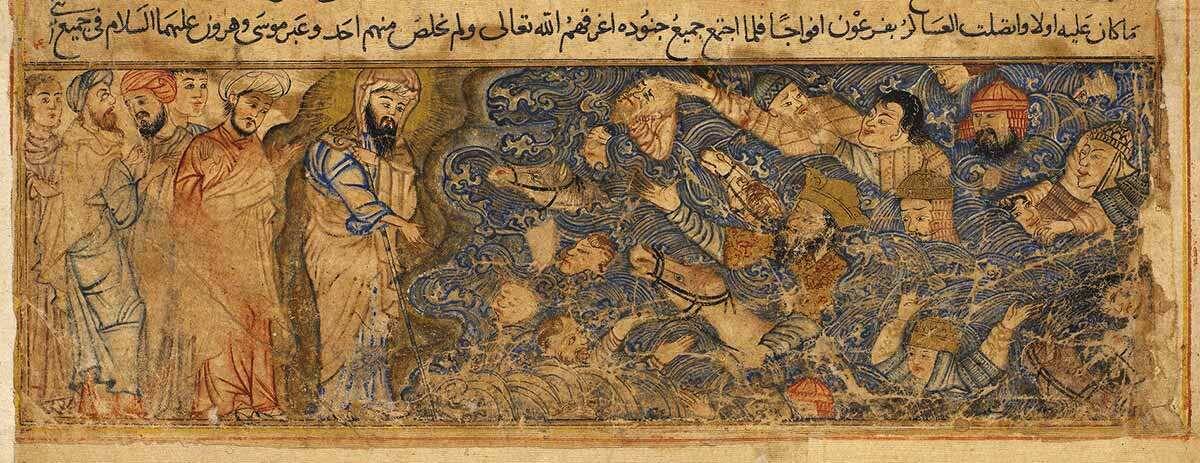 ما كان عليه اولا واتصلت العساكر بفرعون افواجا فلما اجتمع جميع جنوده اغرقهم الله تعالى ولم يخلص منهم احد وعبر موسى وهرون عليهما السلام في جميع